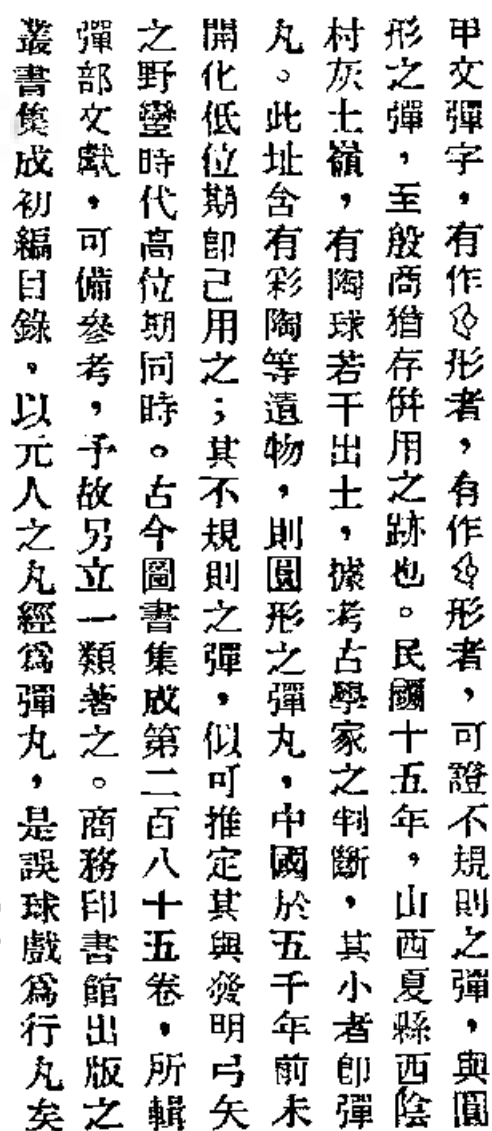 甲文彈字，有作形者，有作形者，可證不規則之彈，與圓
形之彈，至殷商猶存併用之跡也。民國十五年，山西夏縣西陰
村灰土嶺，有陶球若干出土，據考古學家之判斷，其小者卽彈
丸。此址含有彩陶等遺物，則圓形之彈丸，中國於五千年前未
開化低位期卽已用之；其不規則之彈，似可推定其與發明弓矢
之野蠻時代高位期同時。古今圖書集成第二百八十五卷，所輯
彈部文獻，可備參考，予故另立一類著之。商務印書館出版之
叢書集成初編目錄，以元人之丸經爲彈丸，是誤球戲爲行丸矣